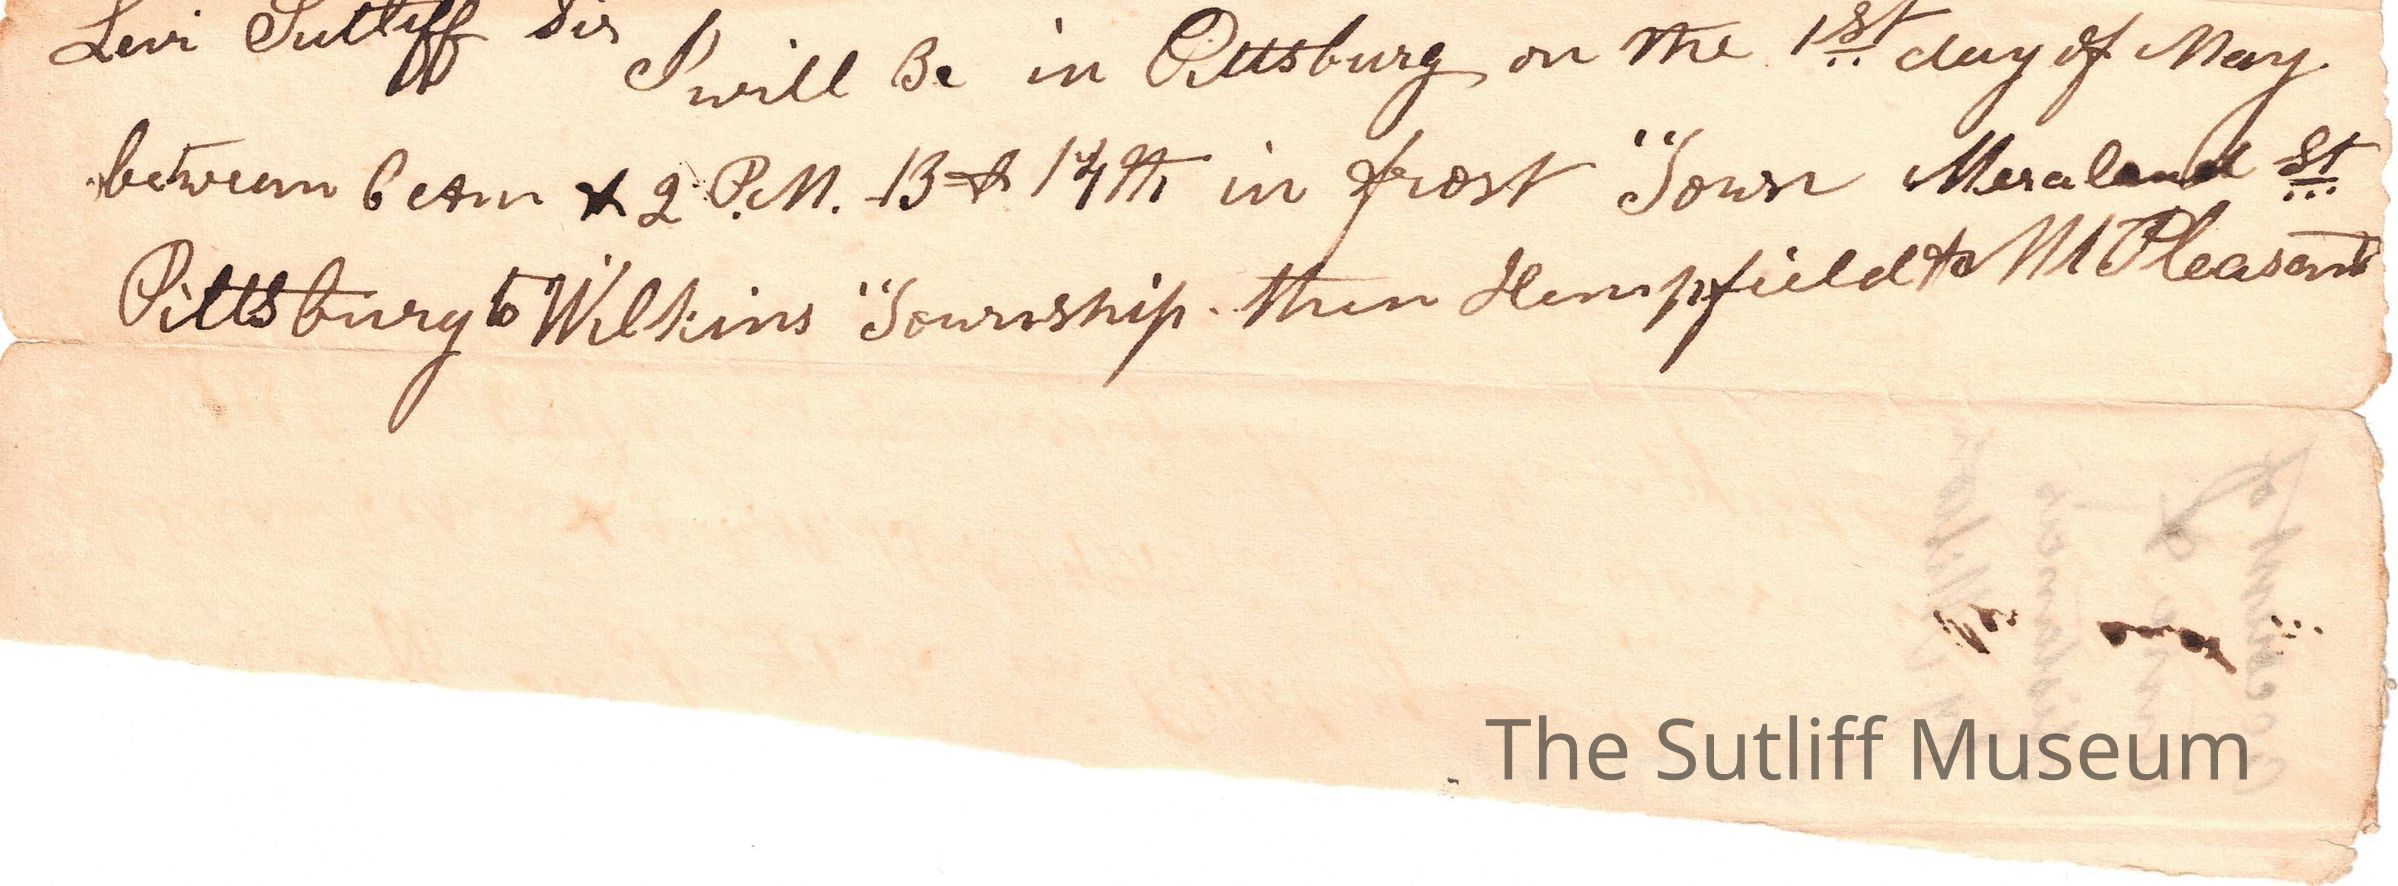 Levi Sutliff Sir
I will Be in Pittsburg on the 1st day of May.
between 6 am & 2 P.M. 13 & 14th in frost Town Meraland St
Pittsburg to Wilkins Township. then Hempfield to Mt Pleasant
The Sutliff Museum